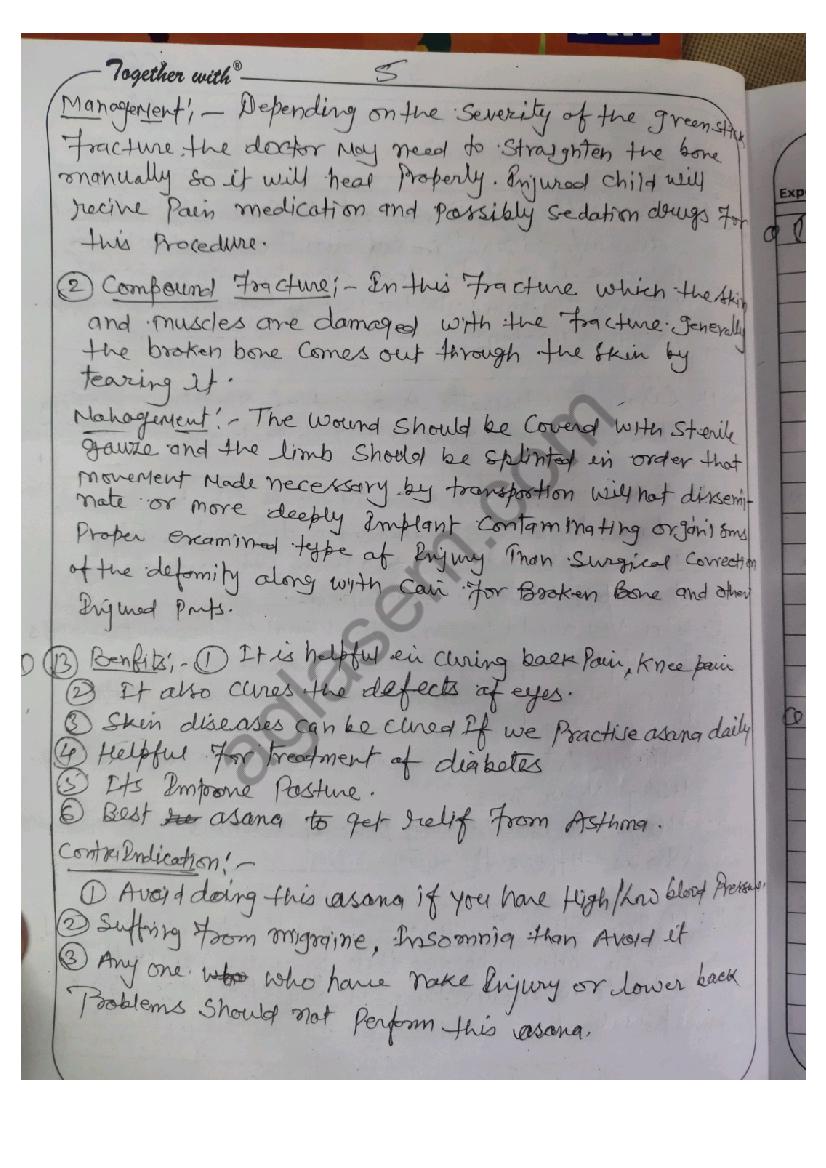 Together with® 5
Management:- Depending on the severity of the greenstick
fracture, the doctor may need to straighten the bone
manually so it will heal properly. Injured child will
recive pain medication and possibly sedation drugs for
this procedure.
② Compound Fracture:- In this fracture which the skin
and muscles are damaged with the fracture. generally
the broken bone comes out through the skin by
tearing it.
Management:- The wound should be coverd with sterile
gauze and the limb should be splinted in order that
movement made necessary by transportion will not dissemi-
nate or more deeply implant contaminating organisms
Proper examined type of injury Than surgical correction
of the defomity along with for Broken Bone and other
Injured Parts.
B Benfits:- ① It is helpful in curing back pain, knee pain
② It also cures the defects of eyes.
③ Skin diseases can be cured If we Practise asana daily
④ Helpful for treatment of diabetes
⑤ Its Improve Posture.
⑥ Best asana to get relif from Asthma.
ContraIndication:-
① Avoid doing this asana if you have High/low blood Pressure.
② Suffring from migraine, Insomnia than Avoid it
③ Any one who have nake Injury or lower back
Problems should not perform this asana.
Exp
aglasem.com